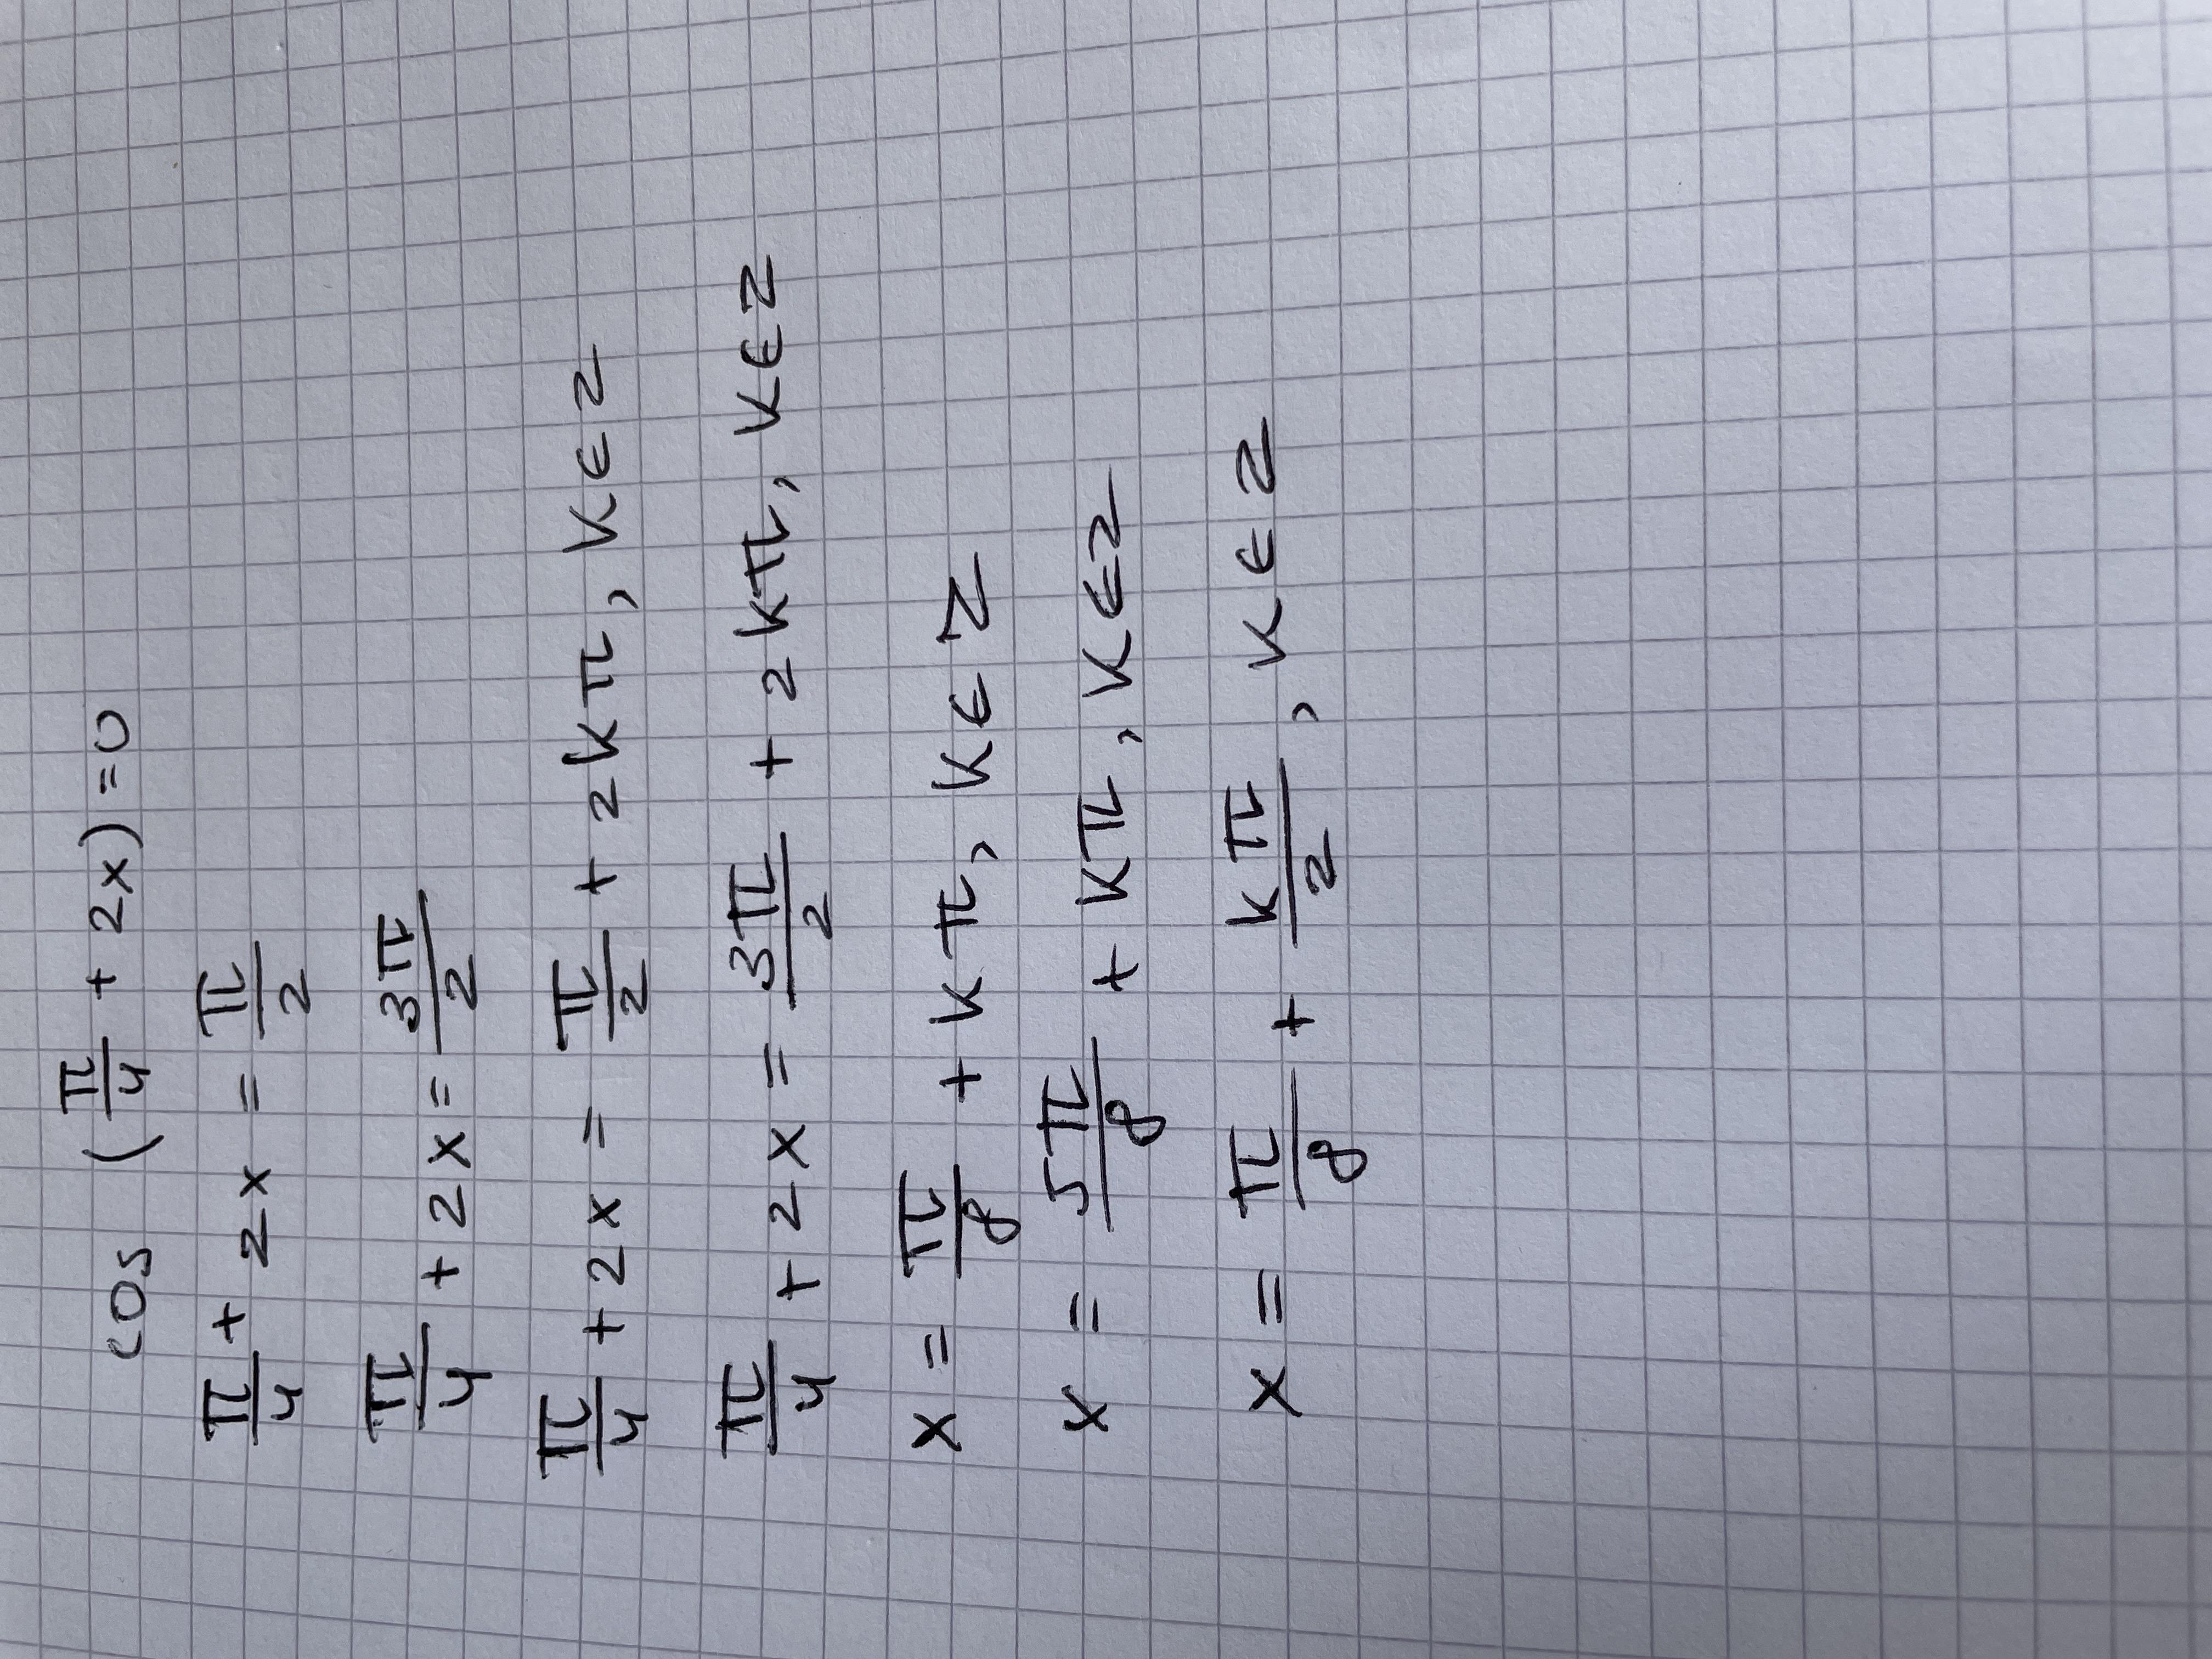 cos (π/4 + 2x) = 0
π/4 + 2x = π/2
π/4 + 2x = 3π/2
π/4 + 2x = π/2 + 2kπ, k∈Z
π/4 + 2x = 3π/2 + 2kπ, k∈Z
x = π/8 + kπ, k∈Z
x = 5π/8 + kπ, k∈Z
x = π/8 + kπ/2, k∈Z